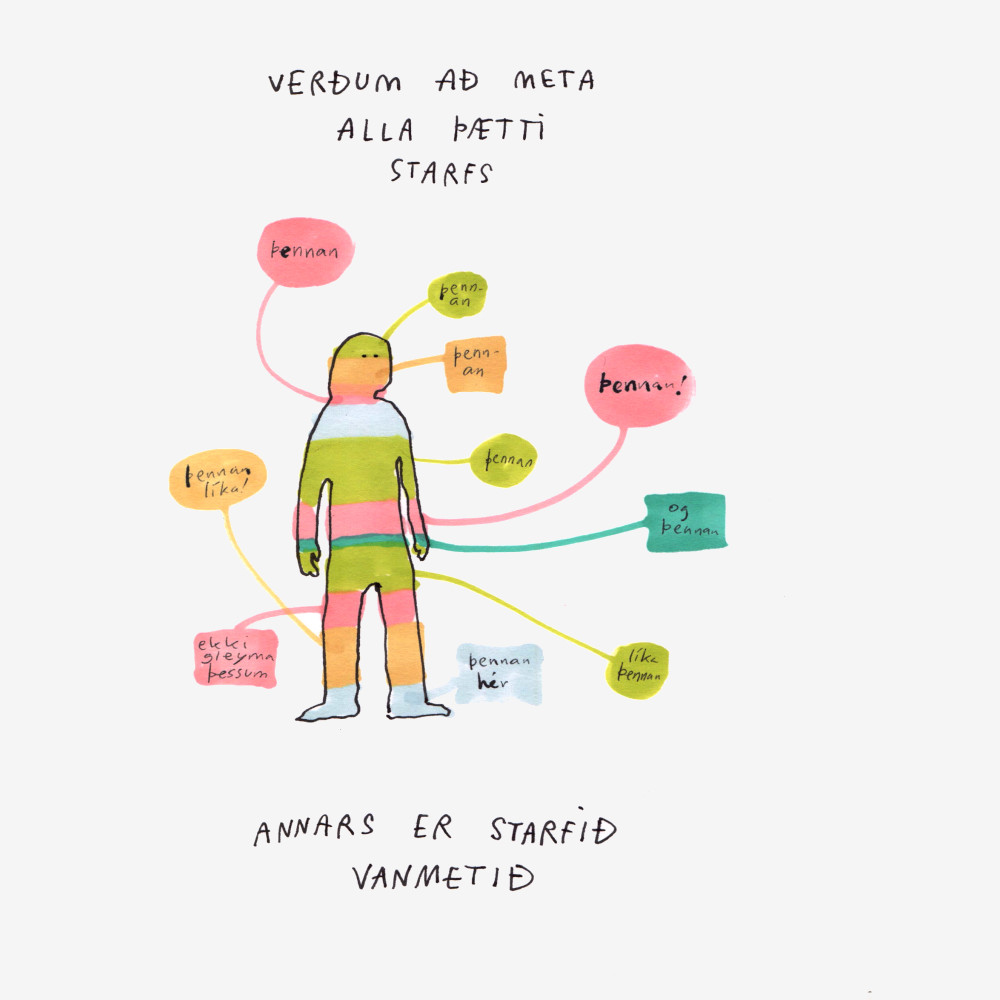 VERÐUM AÐ META
ALLA ÞÆTTI
STARFS
þennan
þenn-
an
þenn-
an
þennan!
þennan
þennan
líka!
og
þennan
ekki
gleyma
þessum
þennan
hér
líka
þennan
ANNARS ER STARFIÐ
VANMETIÐ